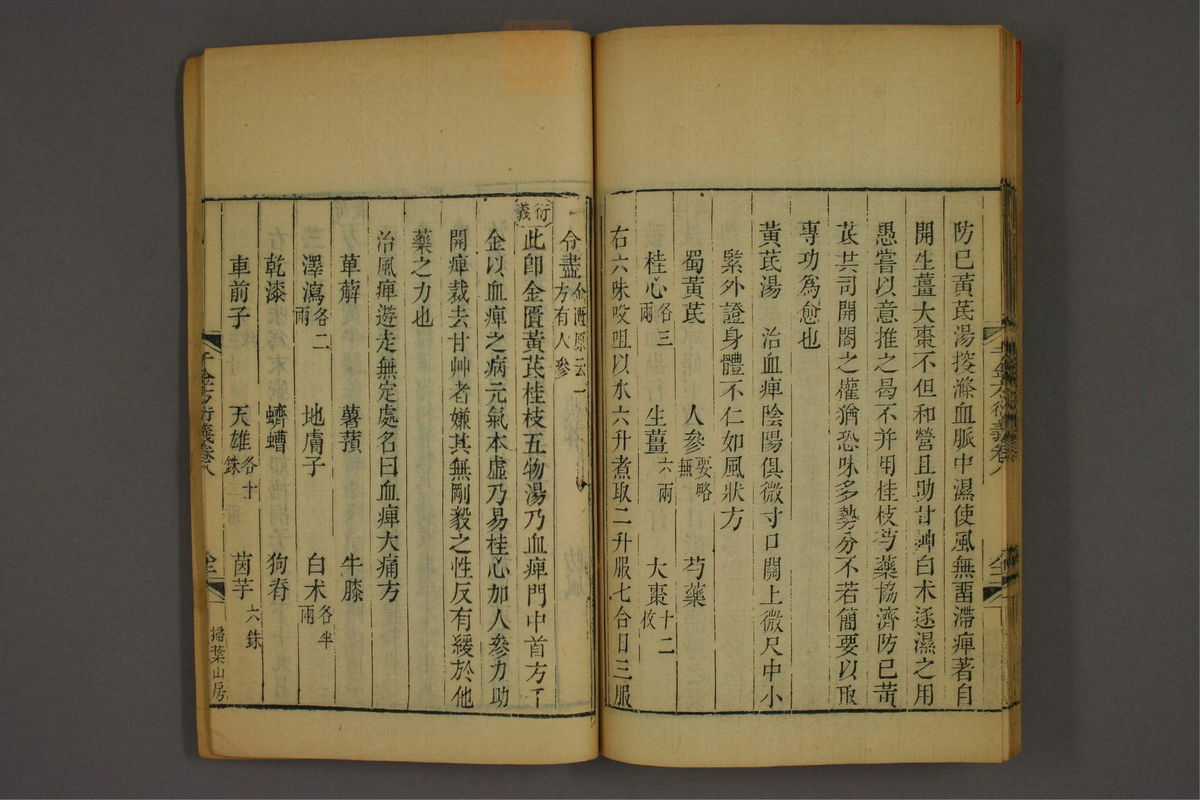 防巳黃芪湯搜滌血脈中濕使風無畱滯痺著自
開生薑大棗不但和營且助甘艸白术逐濕之用
愚嘗以意推之曷不并用桂枝芍藥協濟防巳黃
芪共司開闔之權猶恐味多勢分不若簡要以取
專功爲愈也
黃芪湯 治血痺陰陽俱微寸口關上微尺中小
緊外證身體不仁如風狀方
蜀黃芪 人參要略無 芍藥
桂心各三兩 生薑六兩 大棗十二枚
右六味㕮咀以水六升煮取二升服七合日三服
令盡金匱原云一方有人參
衍義 此卽金匱黃芪桂枝五物湯乃血痺門中首方千
金以血痺之病元氣本虛乃易桂心加人參力助
開痺裁去甘艸者嫌其無剛毅之性反有緩於他
藥之力也
治風痺遊走無定處名曰血痺大痛方
萆薢 薯蕷 牛膝
澤瀉各二兩 地膚子 白术各半兩
乾漆 蠐螬 狗脊
車前子 天雄各十銖 茵芋六銖
千金方衍義卷八
全二
掃葉山房